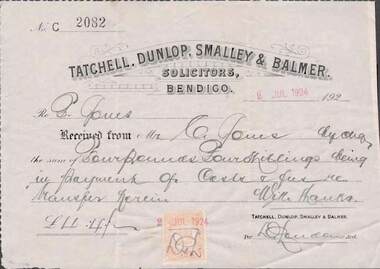 No. C 2082
TATCHELL, DUNLOP, SMALLEY & BALMER.
SOLICITORS,
BENDIGO.
2 JUL 1924 192
Re E. Jones
Received from Mr C. Jones
the sum of Four Pounds Four Shillings being
in payment of Costs & fees re
transfer herein With thanks.
TATCHELL, DUNLOP, SMALLEY & BALMER.
£4:4:- 2 JUL 1924
Per